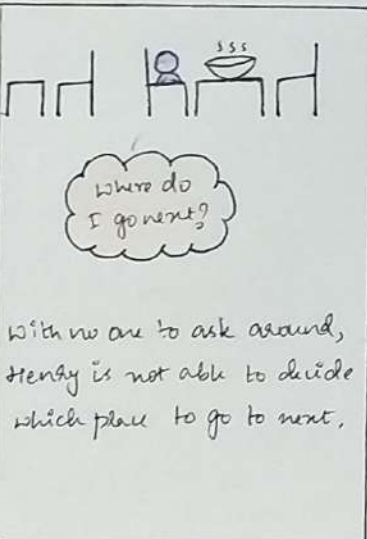 where do
I go next?
With no one to ask around,
Henry is not able to decide
which place to go to next.